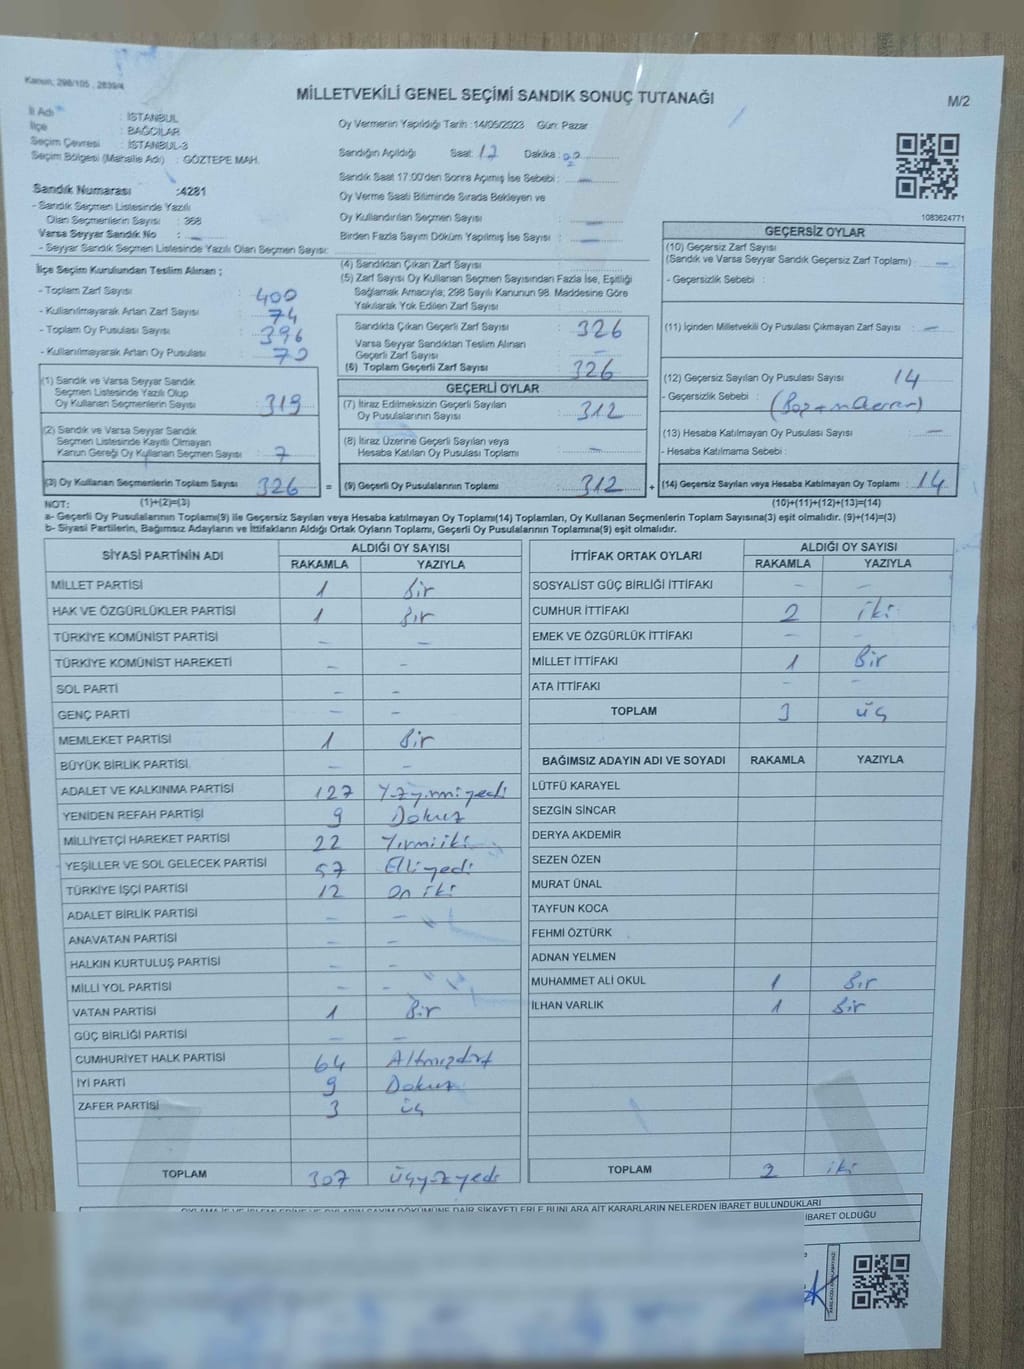 Kanun, 298/105 , 2839/4
MİLLETVEKİLİ GENEL SEÇİMİ SANDIK SONUÇ TUTANAĞI
M/2
İl Adı : İSTANBUL
İlçe : BAĞCILAR
Seçim Çevresi : İSTANBUL-3
Seçim Bölgesi (Mahalle Adı) : GÖZTEPE MAH.
Sandık Numarası :4281
- Sandık Seçmen Listesinde Yazılı
Olan Seçmenlerin Sayısı : 368
Varsa Seyyar Sandık No : -
- Seyyar Sandık Seçmen Listesinde Yazılı Olan Seçmen Sayısı:
Oy Vermenin Yapıldığı Tarih :14/05/2023 Gün: Pazar
Sandığın Açıldığı Saat: 17 Dakika :
Sandık Saat 17:00'den Sonra Açılmış İse Sebebi : -
Oy Verme Saati Bitiminde Sırada Bekleyen ve
Oy Kullandırılan Seçmen Sayısı -
Birden Fazla Sayım Döküm Yapılmış İse Sayısı -
1083624771
İlçe Seçim Kurulundan Teslim Alınan ;
- Toplam Zarf Sayısı : 400
- Kullanılmayarak Artan Zarf Sayısı : 74
- Toplam Oy Pusulası Sayısı : 396
- Kullanılmayarak Artan Oy Pusulası : 70
(1) Sandık ve Varsa Seyyar Sandık
Seçmen Listesinde Yazılı Olup
Oy Kullanan Seçmenlerin Sayısı : 319
(2) Sandık ve Varsa Seyyar Sandık
Seçmen Listesinde Kayıtlı Olmayan
Kanun Gereği Oy Kullanan Seçmen Sayısı : 7
(3) Oy Kullanan Seçmenlerin Toplam Sayısı 326 =
(1)+(2)=(3)
(4) Sandıktan Çıkan Zarf Sayısı :
(5) Zarf Sayısı Oy Kullanan Seçmen Sayısından Fazla İse, Eşitliği
Sağlamak Amacıyla; 298 Sayılı Kanunun 98. Maddesine Göre
Yakılarak Yok Edilen Zarf Sayısı :
Sandıkta Çıkan Geçerli Zarf Sayısı : 326
Varsa Seyyar Sandıktan Teslim Alınan
Geçerli Zarf Sayısı : -
(6) Toplam Geçerli Zarf Sayısı : 326
GEÇERLİ OYLAR
(7) İtiraz Edilmeksizin Geçerli Sayılan
Oy Pusulalarının Sayısı : 312
(8) İtiraz Üzerine Geçerli Sayılan veya
Hesaba Katılan Oy Pusulası Toplamı : -
(9) Geçerli Oy Pusulalarının Toplamı : 312 +
GEÇERSİZ OYLAR
(10) Geçersiz Zarf Sayısı
(Sandık ve Varsa Seyyar Sandık Geçersiz Zarf Toplamı) : -
- Geçersizlik Sebebi :
(11) İçinden Milletvekili Oy Pusulası Çıkmayan Zarf Sayısı : -
(12) Geçersiz Sayılan Oy Pusulası Sayısı : 14
- Geçersizlik Sebebi :
(13) Hesaba Katılmayan Oy Pusulası Sayısı : -
- Hesaba Katılmama Sebebi :
(14) Geçersiz Sayılan veya Hesaba Katılmayan Oy Toplamı : 14
(10)+(11)+(12)+(13)=(14)
NOT:
a- Geçerli Oy Pusulalarının Toplamı(9) ile Geçersiz Sayılan veya Hesaba katılmayan Oy Toplamı(14) Toplamları, Oy Kullanan Seçmenlerin Toplam Sayısına(3) eşit olmalıdır. (9)+(14)=(3)
b- Siyasi Partilerin, Bağımsız Adayların ve İttifakların Aldığı Ortak Oyların Toplamı, Geçerli Oy Pusulalarının Toplamına(9) eşit olmalıdır.
SİYASİ PARTİNİN ADI ALDIĞI OY SAYISI
RAKAMLA YAZIYLA
MİLLET PARTİSİ 1 Bir
HAK VE ÖZGÜRLÜKLER PARTİSİ 1 Bir
TÜRKİYE KOMÜNİST PARTİSİ - -
TÜRKİYE KOMÜNİST HAREKETİ - -
SOL PARTİ - -
GENÇ PARTİ - -
MEMLEKET PARTİSİ 1 Bir
BÜYÜK BİRLİK PARTİSİ - -
ADALET VE KALKINMA PARTİSİ 127 Yüzyirmiyedi
YENİDEN REFAH PARTİSİ 9 Dokuz
MİLLİYETÇİ HAREKET PARTİSİ 22 Yirmiiki
YEŞİLLER VE SOL GELECEK PARTİSİ 57 Elliyedi
TÜRKİYE İŞÇİ PARTİSİ 12 On iki
ADALET BİRLİK PARTİSİ - -
ANAVATAN PARTİSİ - -
HALKIN KURTULUŞ PARTİSİ - -
MİLLİ YOL PARTİSİ - -
VATAN PARTİSİ 1 Bir
GÜÇ BİRLİĞİ PARTİSİ - -
CUMHURİYET HALK PARTİSİ 64 Altmışdört
İYİ PARTİ 9 Dokuz
ZAFER PARTİSİ 3 üç
TOPLAM 307 üçyüzyedi
İTTİFAK ORTAK OYLARI ALDIĞI OY SAYISI
RAKAMLA YAZIYLA
SOSYALİST GÜÇ BİRLİĞİ İTTİFAKI - -
CUMHUR İTTİFAKI 2 iki
EMEK VE ÖZGÜRLÜK İTTİFAKI - -
MİLLET İTTİFAKI 1 Bir
ATA İTTİFAKI - -
TOPLAM 3 üç
BAĞIMSIZ ADAYIN ADI VE SOYADI RAKAMLA YAZIYLA
LÜTFÜ KARAYEL
SEZGİN SİNCAR
DERYA AKDEMİR
SEZEN ÖZEN
MURAT ÜNAL
TAYFUN KOCA
FEHMİ ÖZTÜRK
ADNAN YELMEN
MUHAMMET ALİ OKUL 1 Bir
İLHAN VARLIK 1 Bir
TOPLAM 2 iki
OYLAMA İŞ VE İŞLEMLERİNE VE OYLARIN SAYIM DÖKÜMÜNE DAİR ŞİKAYETLERLE BUNLARA AİT KARARLARIN NELERDEN İBARET BULUNDUKLARI
İBARET OLDUĞU